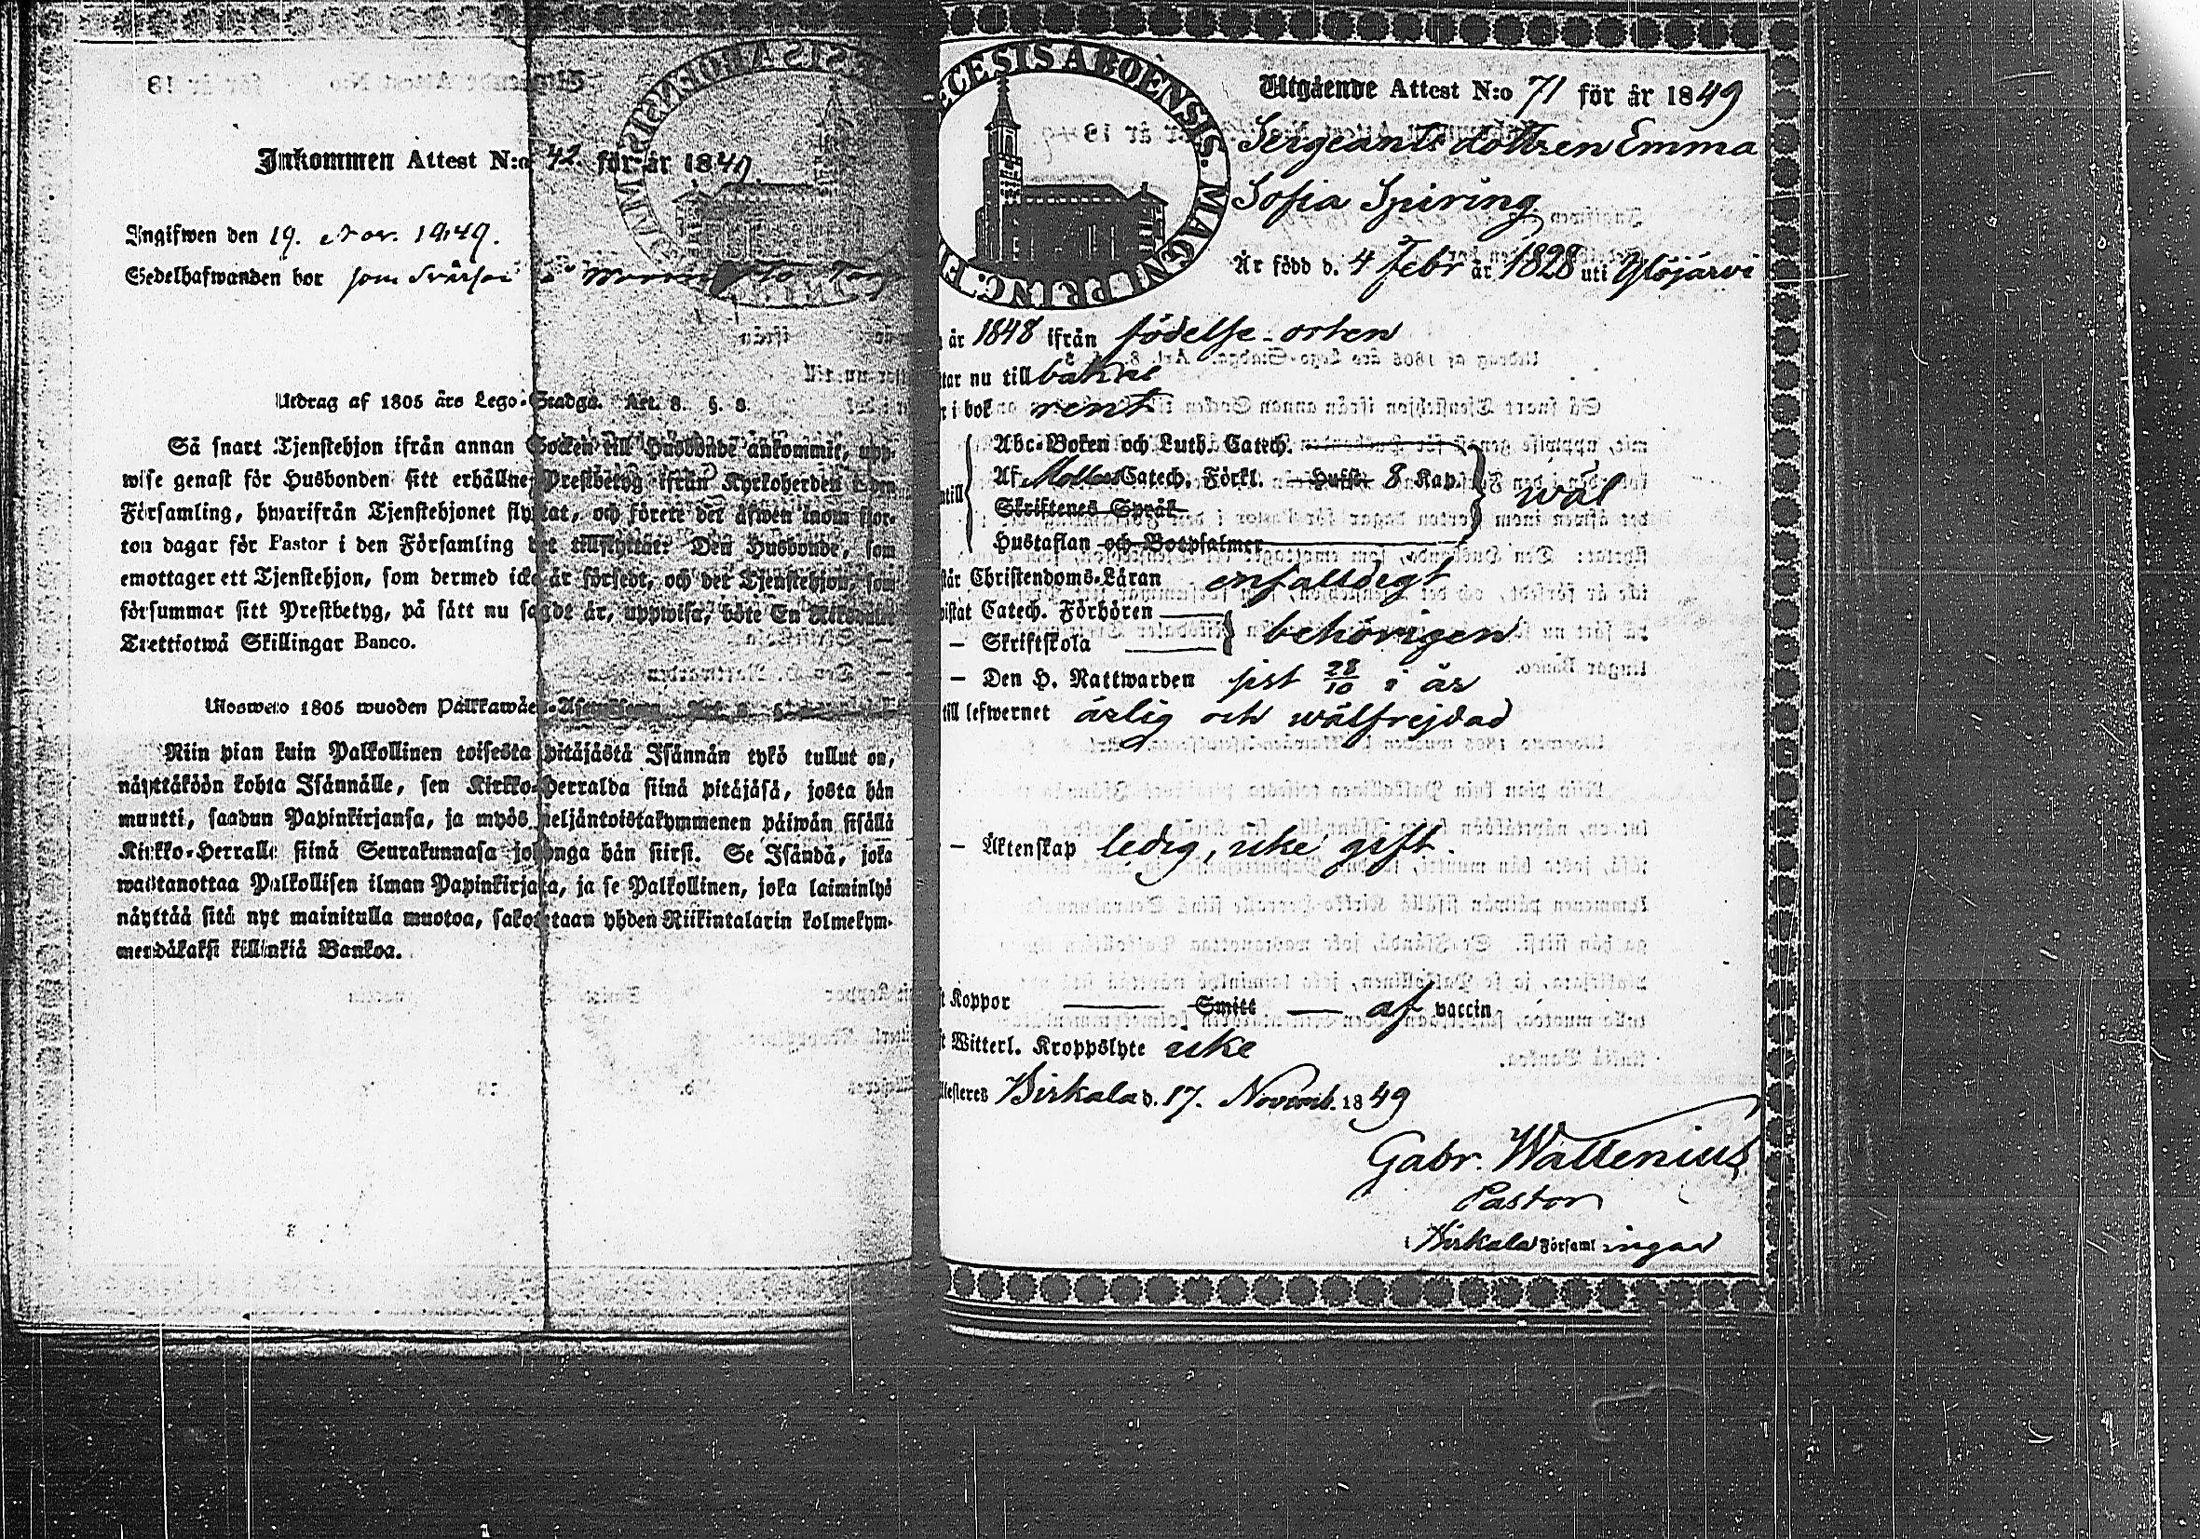 Inkommen Attest N:o 42. för år 1849
Ingifwen den 19. Nov. 1849.
Sedelhafwanden bor som
Utdrag af 1805 års Lego-Stadga. Art. 8. §. 8.
Så snart Tjenstehjon ifrån annan Socken till Husbonde ankommit, upp-
wise genast för Husbonden sitt erhållne Prestbetyg ifrån Kyrkoherden i den
Församling, hwarifrån Tjenstehjonet flyttat, och förete det äfwen inom fjor-
ton dagar för Pastor i den Församling det tillflyttat: Den Husbonde, som
emottager ett Tjenstehjon, som dermed icke är försedt, och det Tjenstehjon, som
försummar sitt Prestbetyg, på sätt nu sagdt är, uppwisa, böte En Riksdaler
Trettiotwå Skillingar Banco.
Uloswето 1805 wuoden Palkkawäen-Asetuksesta. Art. 8. §.
Niin pian kuin Palkollinen toisesta pitäjästä Isännän tykö tullut on,
näyttäköön kohta Isännälle, sen Kirkko-Herralda siinä pitäjäsä, josta hän
muutti, saadun Papinkirjansa, ja myös neljäntoistakymmenen päiwän sisällä
Kirkko-Herralle siinä Seurakunnasa johonga hän siirsi. Se Isändä, joka
wastanottaa Palkollisen ilman Papinkirjata, ja se Palkollinen, joka laiminlyö
näyttää sitä nyt mainitulla muotoa, sakotetaan yhden Riikintalarin kolmekym-
mendäkaksi killinkiä Bankoa.
ECESIS ABOENSIS. MAGNI PRINC. FI
Utgående Attest N:o 71 för år 1849
Sergeants dottren Emma
Sofia Spiring
Är född d. 4 Febr år 1828 uti Ylöjärvi
år 1848 ifrån födelse-orten
tar nu till bakas
r i bok rent
Abc-Boken och Luth. Catech.
Af Möllers Catech. Förkl. Hufst. 8 Kap.
ntill Skriftenes Språk wäl
Hustaflan och Botpsalmer
står Christendoms-Läran enfalldigt
wistat Catech. Förhören
— Skriftskola behörigen
— Den H. Nattwarden sist 28/10 i år
till lefwernet ärlig och wälfrejdad
— Äktenskap ledig, icke gift.
t Koppor Smitt af vaccin
t Witterl. Kroppslyte icke
ttesteres Birkala d. 17. Novemb. 1849
Gabr. Wallenius
Pastor
i Birkala Församlingar